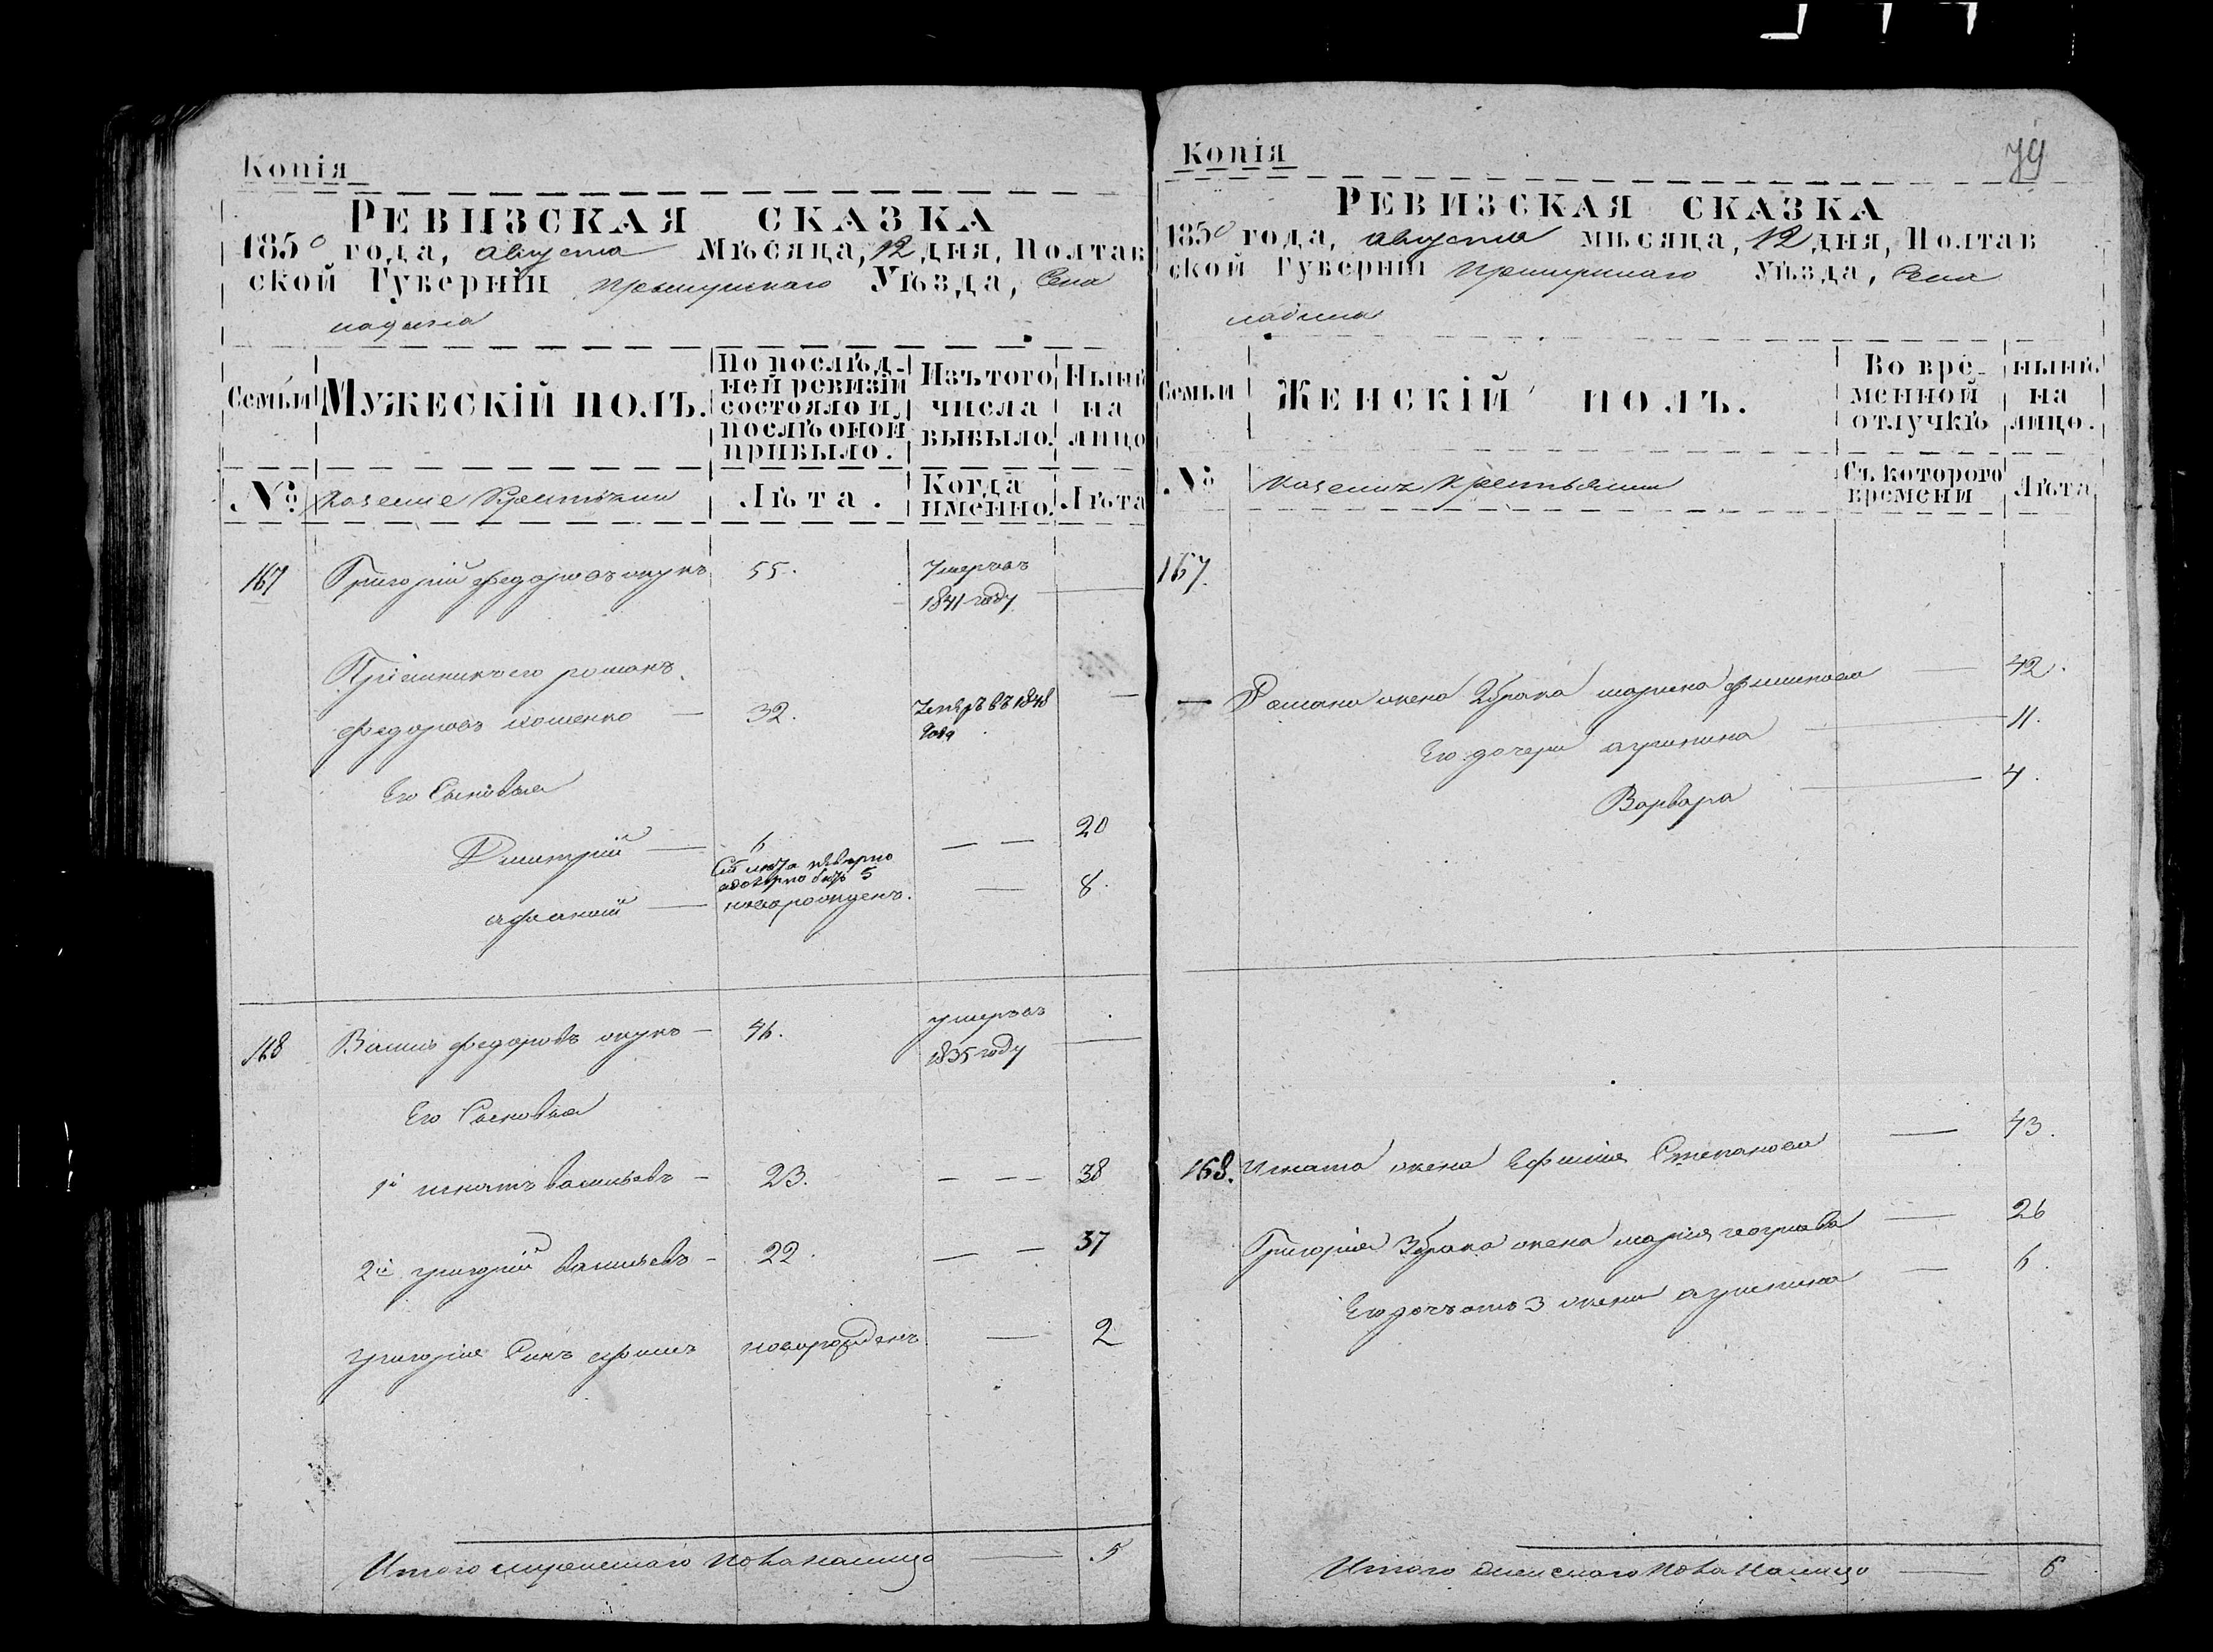 Копія
РЕВИЗСКАЯ СКАЗКА
1850 года, августа Мѣсяца, 12 дня, Полтав
ской Губерніи Прилуцкаго Уѣзда, Села
Ладина
Семьи
МУЖЕСКІЙ ПОЛЪ.
По послѣд-
ней ревизіи
состояло и
послѣ оной
прибыло.
Изъ того
числа
выбыло.
Нынѣ
на
лицо
№
Казенные Крестьяне
Лѣта.
Когда
именно.
Лѣта
167 Григорій Федоровъ 55. Умеръ въ
1841 году
Роман
Федоровъ 32. Умеръ въ 1848
года
Его Сыновья
Дмитрій 6 20
Сіи лѣта невѣрно
а вѣрно бытъ 5
Афанасій новорожденъ. 8.
168 Василь Федоровъ 46. умеръ въ
1835 году
Его Сыновья
1й Игнатъ Васильевъ 23. 38
2й Григорій Васильевъ 22. 37
Григорія Сынъ Ефимъ новорожденъ 2
Итого мужескаго пола налицо 5
Копія
79
РЕВИЗСКАЯ СКАЗКА
1850 года, августа мѣсяца, 12 дня, Полтав
ской Губерніи Прилуцкаго Уѣзда, Села
Ладина
Семьи
ЖЕНСКІЙ ПОЛЪ.
Во вре-
менной
отлучкѣ
нынѣ
на
лицо.
№
Казенные Крестьянки
Съ которого
времени
Лѣта
167.
Романа жена 2 брака Марина 42.
Его дочери Агрипина 11.
Варвара 4.
168. Игната жена Ефимія Степанова 43.
Григорія 3 брака жена Марія 26
Его дочь отъ 3 жены Агрипина 6.
Итого женскаго пола налицо 6